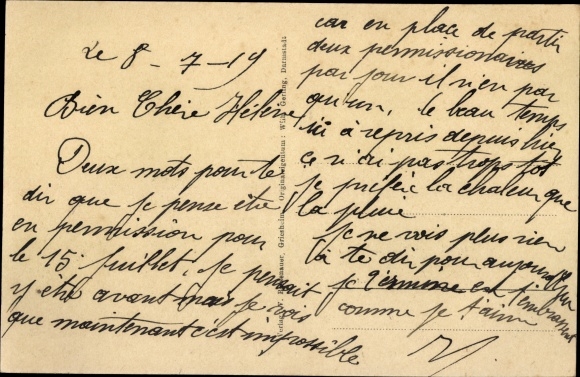 Le 8-7-19
Bien Chère Hélène
Deux mots pour te
dir que je pense être
en permission pour
le 15 juillet, je pensait
y être avant mais je vois
que maintenant c'est impossible
car en place de partir
deux permissionaires
par jour il n'en par
qu'un, le beau temps
à repris depuis hier
ce n'ai pas trops tot
je préfére la chaleur que
la pluie
Je ne vois plus rien
à te dir pour aujourd'hui
je termine en t'embrassant
comme je t'aime
Verlag v. Griesheim, Originaleigentum: Wilh. Gerling, Darmstadt